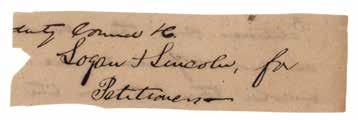 County Court
Logan & Lincoln, for
Petitioners